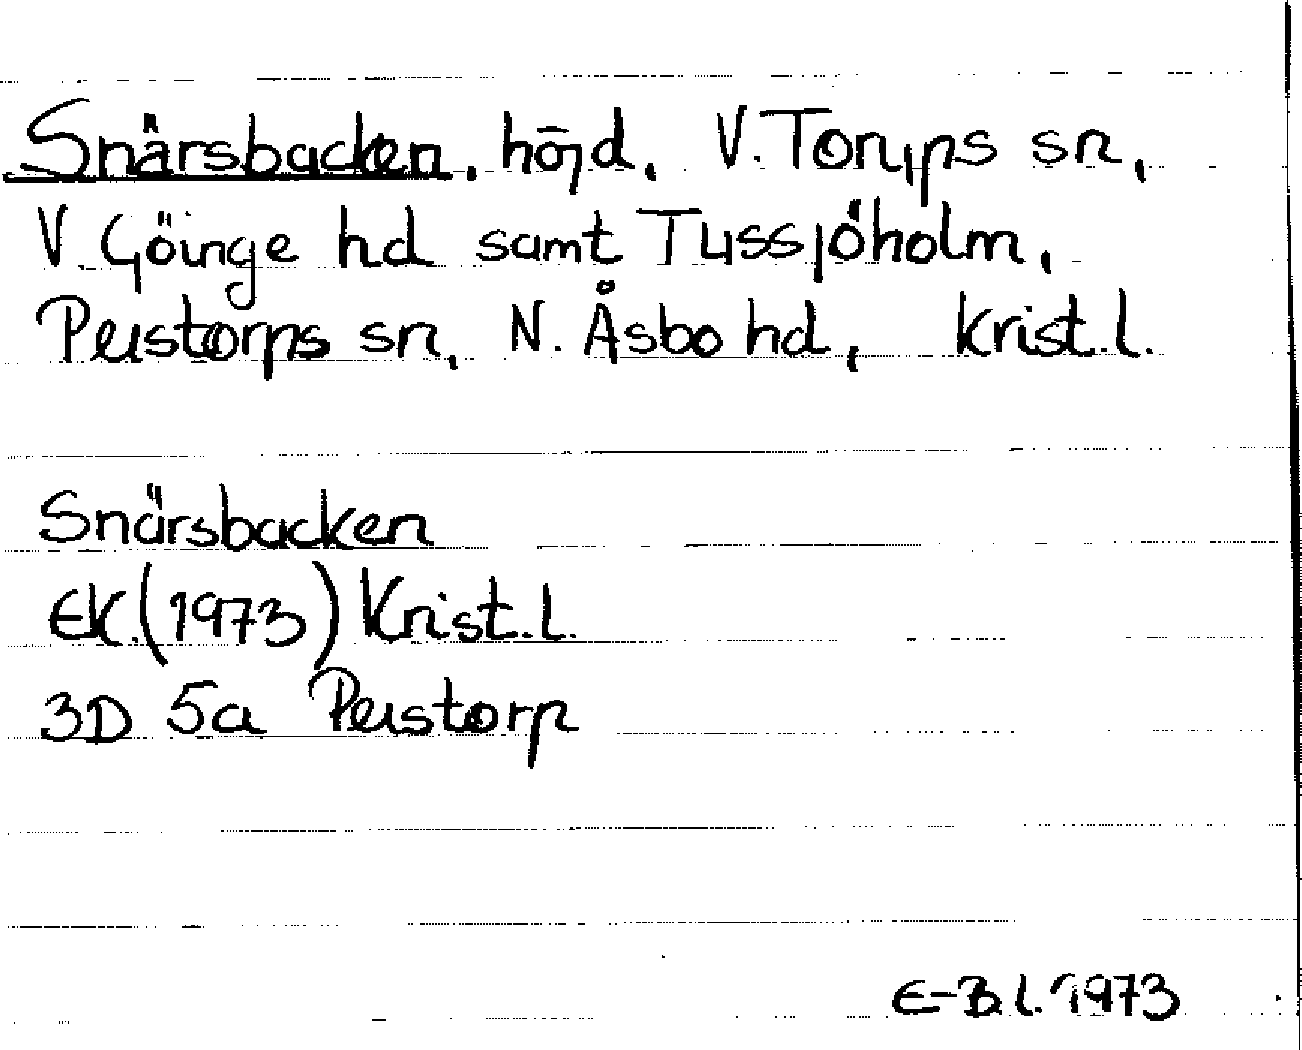 Snärsbacken, höjd, V. Torups sn,
V. Göinge hd samt Tussjöholm,
Perstorps sn, N. Åsbo hd, Krist. l.
Snärsbacken
EK. (1973) Krist. l.
3D 5a Perstorp
E-B. l. 1973